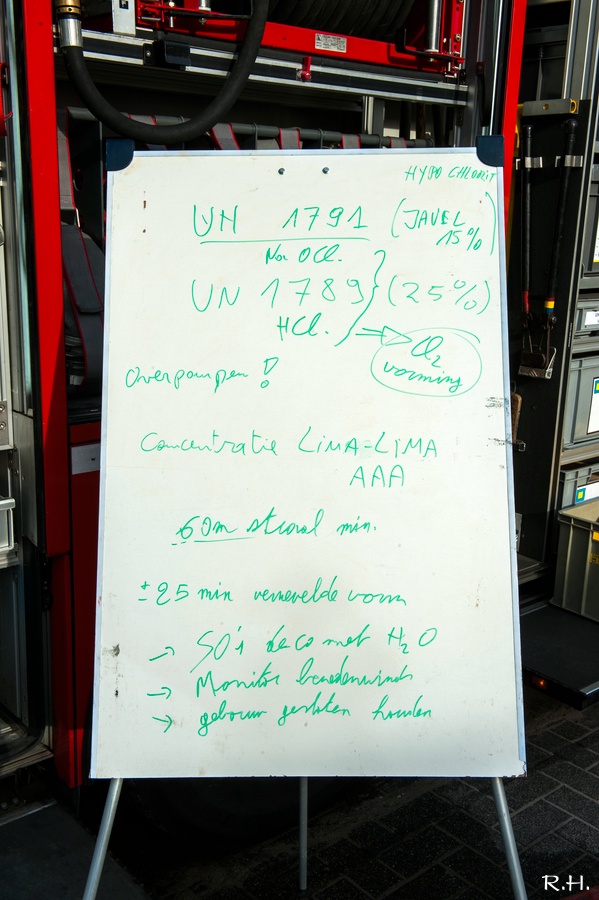 HYPO CHLORIET
UN 1791 (JAVEL 15%)
NaOCl.
UN 1789 (25%)
HCl.
Cl2 vorming
Overpompen!
Concentratie LiMA-LiMA
AAA
60m straal min.
± 25 min vernevelde vorm
→ SO's deco met H2O
→ Monitor benedenwinds
→ gebouw gesloten houden
R.H.